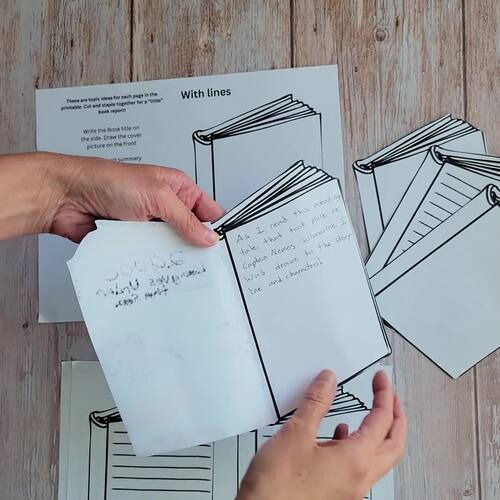 These are topic ideas for each page in the
printable. Cut and staple together for a "little"
book report!
With lines
Write the Book title on
the stem. Draw the cover
picture on the front
summary
As I read this amazing
tale that took place on
Captain Nemos submarine, I
was drawn to the story
line and
20,000
Leagues Under
the Sea